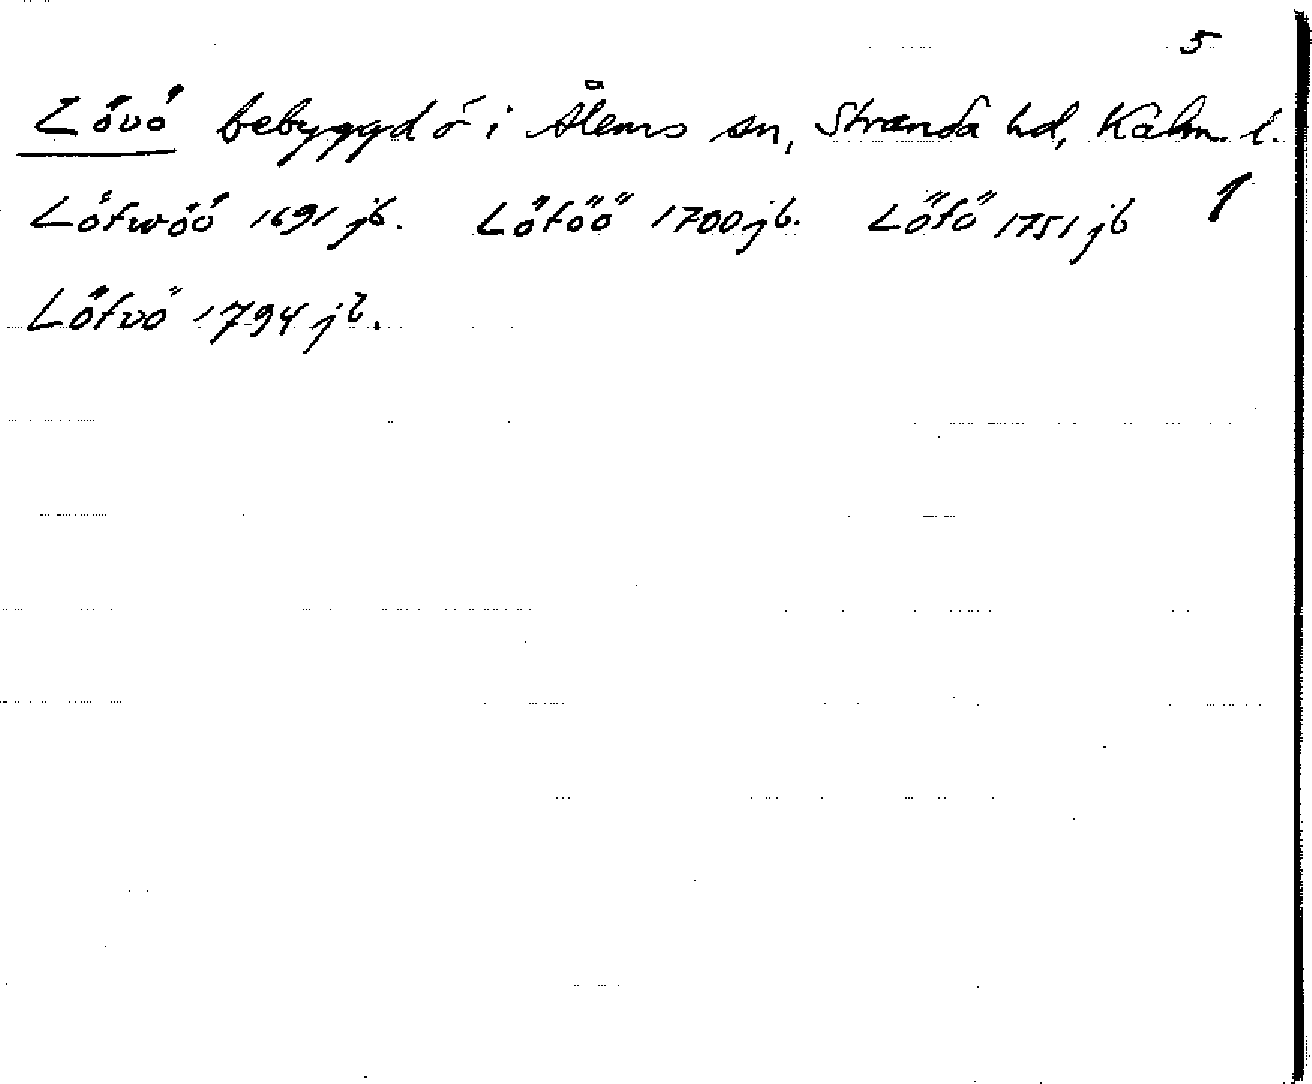 5
Lövö bebyggd ö i Ålems sn, Stranda hd, Kalm. l.
Löfwöö 1691 jb. Löföö 1700 jb. Löfö 1751 jb
Löfvö 1794 jb.